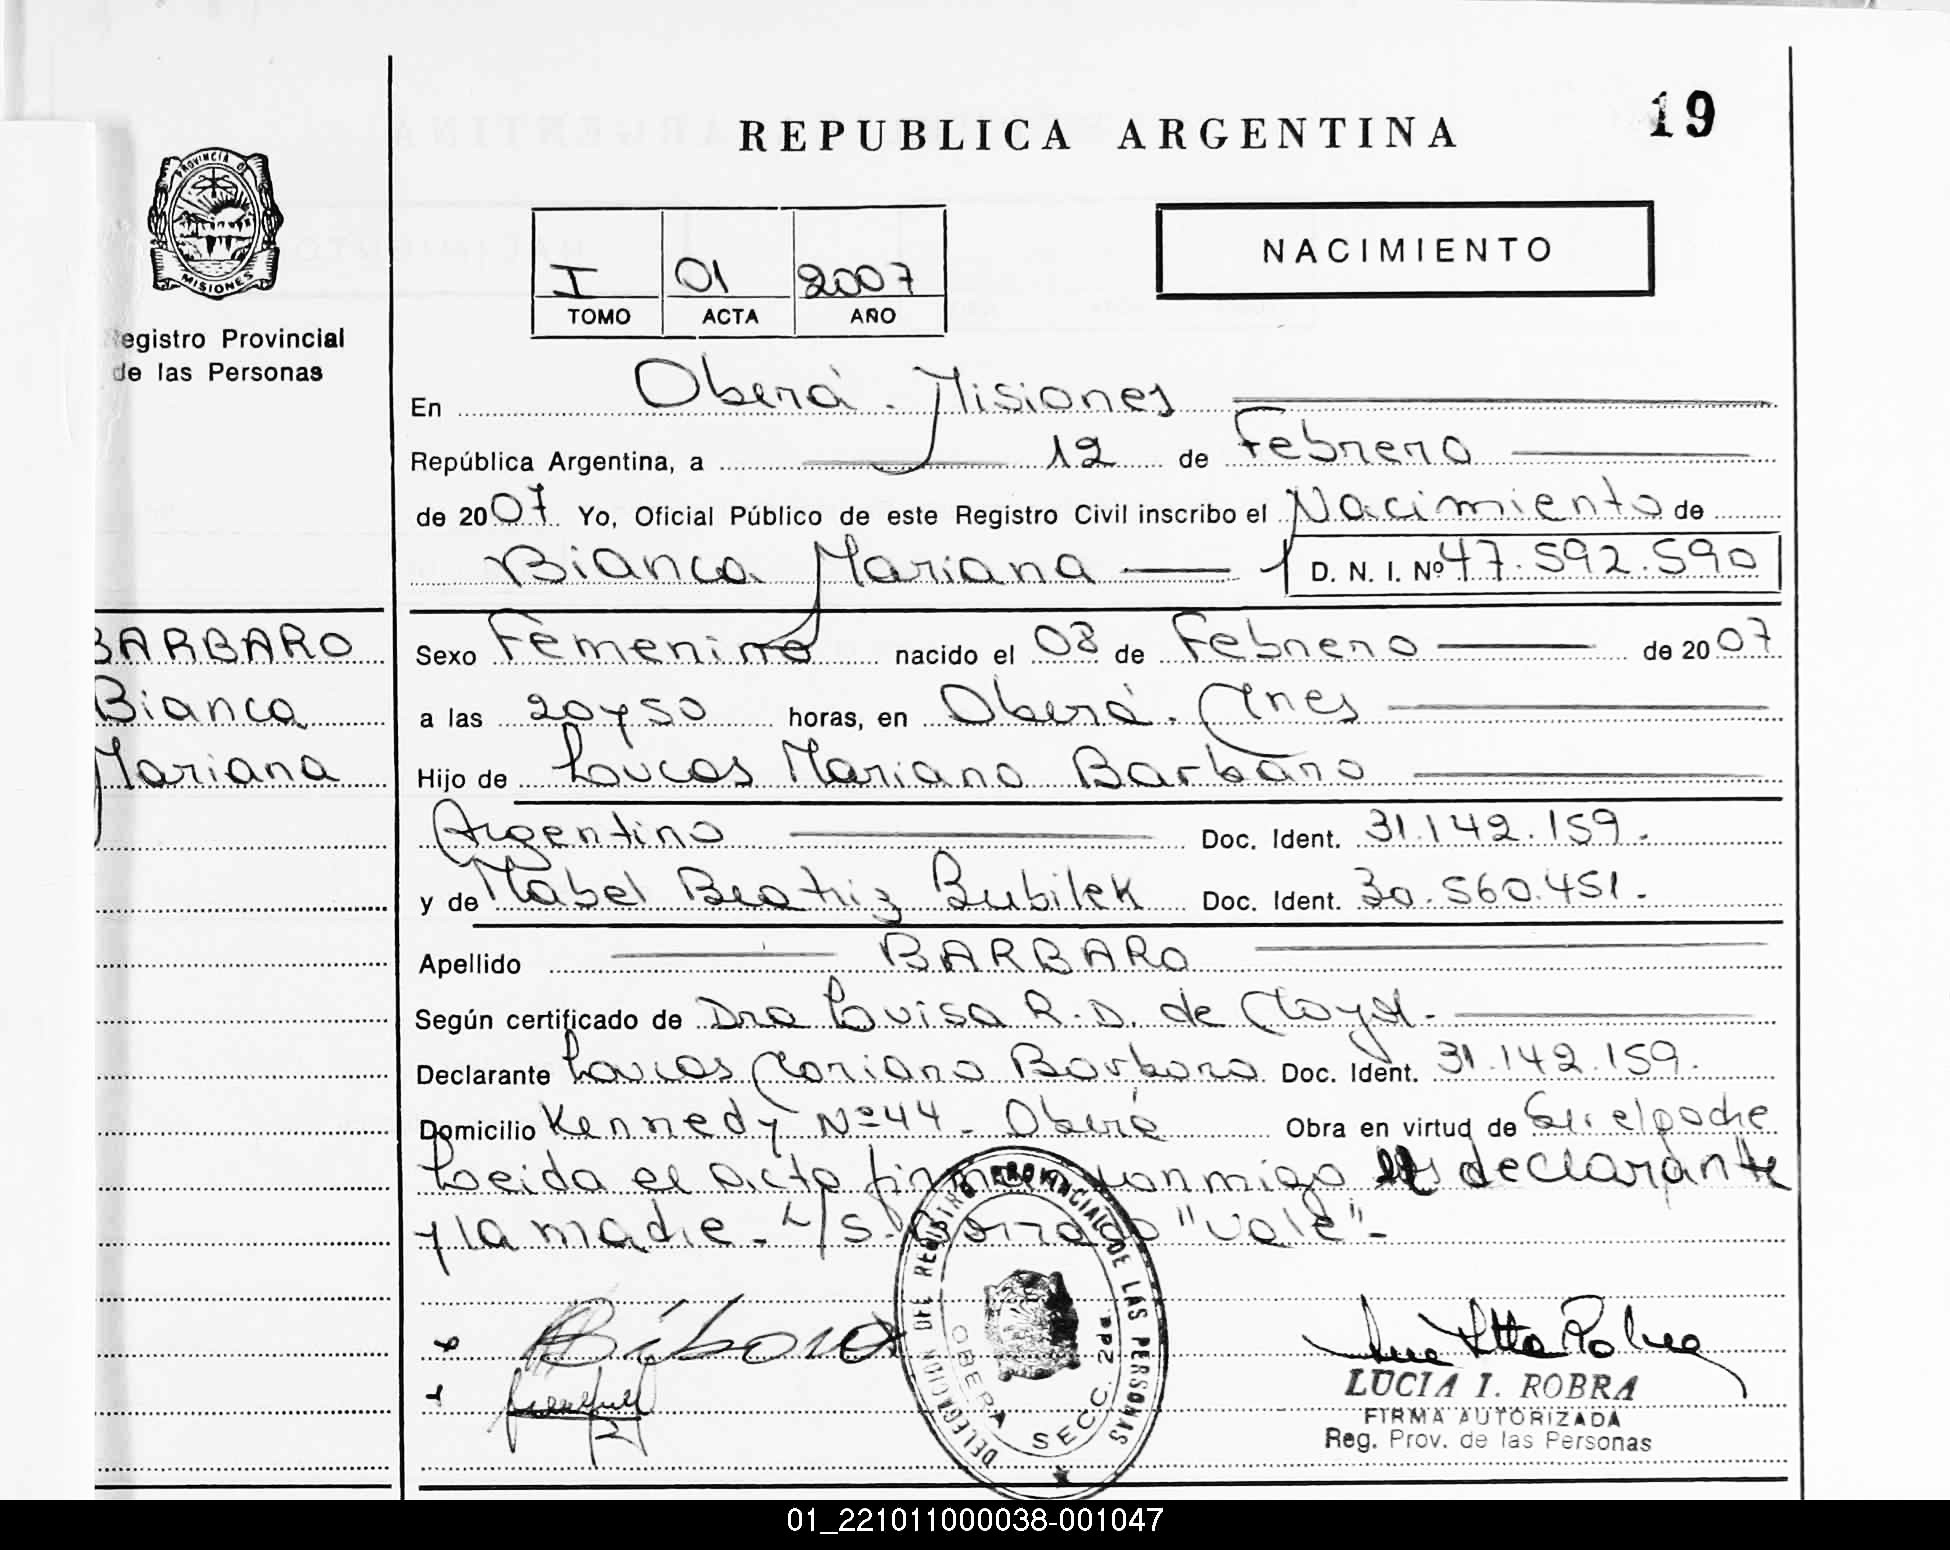 19
REPUBLICA ARGENTINA
PROVINCIA DE
MISIONES
NACIMIENTO
I 01 2007
TOMO ACTA AÑO
Registro Provincial
de las Personas
En Oberá. Misiones
República Argentina, a 12 de Febrero
de 2007 Yo, Oficial Público de este Registro Civil inscribo el Nacimiento de
Bianca Mariana D. N. I. Nº 47.592.590
BARBARO
Bianca
Mariana
Sexo Femenino nacido el 08 de Febrero de 2007
a las 20 y 50 horas, en Oberá. Mnes
Hijo de Lucas Mariano Barbaro
Argentino Doc. Ident. 31.142.159.
y de Mabel Beatriz Bubilek Doc. Ident. 30.560.451.
Apellido BARBARO
Según certificado de Dra Louisa R. D. de
Declarante Lucas Mariano Barbaro Doc. Ident. 31.142.159.
Domicilio Kennedy Nº 44 - Oberá Obra en virtud de Ser el padre
Leida el acta firman conmigo el declarante
y la madre. - S. Borrado "vale".-
DELEGACION DEL REGISTRO PROVINCIAL DE LAS PERSONAS
OBERA SECC. 2da.
LUCIA I. ROBRA
FIRMA AUTORIZADA
Reg. Prov. de las Personas
01_221011000038-001047